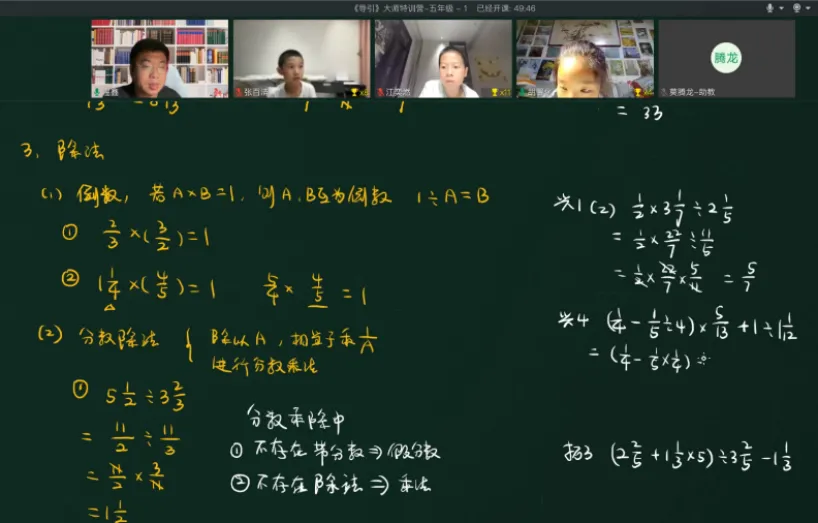 《导引》大师特训营-五年级 - 1 已经开课: 49:46
张百洋
江奕然
腾龙
黄腾龙-助教
= 33
3. 除法
(1) 倒数, 若A×B=1, 则A、B互为倒数 1÷A=B
① 2/3 ×(3/2)=1
② 1 1/4 ×(4/5)=1 5/4 × 4/5 =1
(2) 分数除法 { 除以A, 相当于乘 1/A
进行分数乘法
① 5 1/2 ÷ 3 2/3
= 11/2 ÷ 11/3
= 11/2 × 3/11
= 1 1/2
分数乘除中
① 不存在带分数⇒假分数
② 不存在除法⇒乘法
兴1 (2) 1/2 × 3 1/7 ÷ 2 1/5
= 1/2 × 22/7 ÷ 11/5
= 1/2 × 22/7 × 5/11 = 5/7
兴4 (1/4 - 1/5 ÷4) × 5/13 + 1 ÷ 1 1/12
= (1/4 - 1/5 × 1/4)
拓3 (2 2/5 + 1 1/3 ×5) ÷ 3 2/5 - 1 1/3